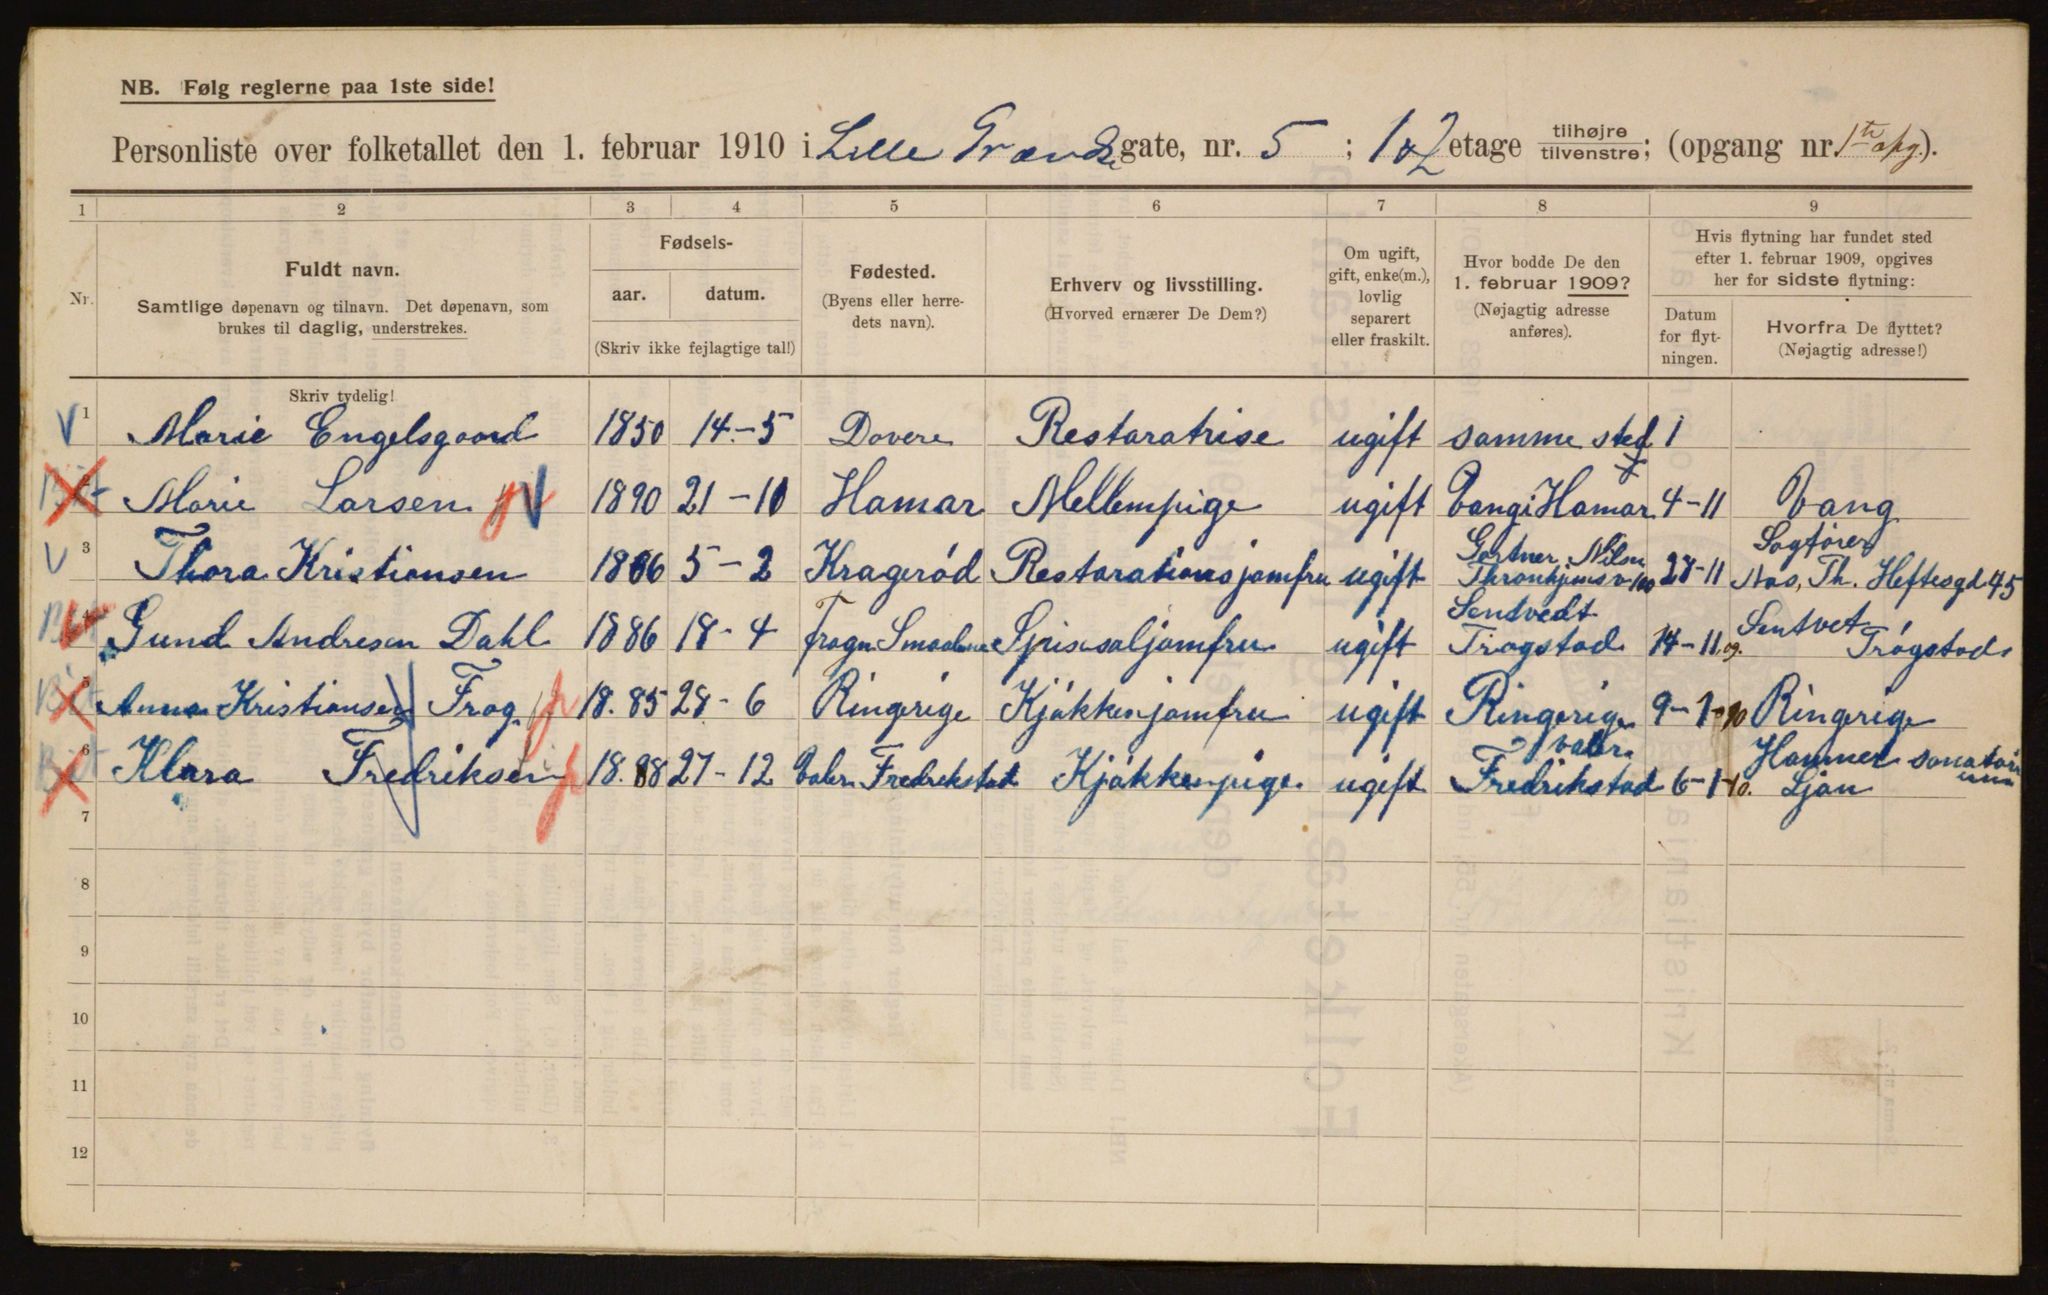 NB. Følg reglerne paa 1ste side!
Personliste over folketallet den 1. februar 1910 i Lille Grændse gate, nr. 5 ; 1 & 2 etage tilhøjre tilvenstre; (opgang nr. 1ste opg.).
1 2 3 4 5 6 7 8 9
Nr.
Fuldt navn.
Samtlige døpenavn og tilnavn. Det døpenavn, som
brukes til daglig, understrekes.
Fødsels-
aar. datum.
(Skriv ikke fejlagtige tal!)
Fødested.
(Byens eller herre-
dets navn).
Erhverv og livsstilling.
(Hvorved ernærer De Dem?)
Om ugift,
gift, enke(m.),
lovlig
separert
eller fraskilt.
Hvor bodde De den
1. februar 1909?
(Nøjagtig adresse
anføres).
Hvis flytning har fundet sted
efter 1. februar 1909, opgives
her for sidste flytning:
Datum
for flyt-
ningen.
Hvorfra De flyttet?
(Nøjagtig adresse!)
Skriv tydelig!
1 Marie Engelsgaard 1850 14-5 Dovere Restaratrise ugift samme sted 1
Marie Larsen 1890 21-10 Hamar Mellempige ugift Vang i Hamar 4-11 Vang
3 Thora Kristiansen 1866 5-2 Kragerød Restarationsjomfru ugift Gartner Nilsen Thronhjemsv. 100 28-11 Sagfører Aas, Th. Heftesgd 45
4 Gund Andresen Dahl 1886 18-4 Frogn Smaalene Spisesaljomfru ugift Sentvedt Trogstad 14-11 09. Sentvet Trógstad
5 Anna Kristiansen Frog 18.85 28-6 Ringerige Kjøkkenjomfru ugift Ringerige 9-1-10 Ringerige
6 Klara Fredriksen 18.88 27-12 Valer Fredrikstad Kjøkkenpige ugift Valer Fredrikstad 6-1-10. Hammer sanatorium Ljan
7
8
9
10
11
12